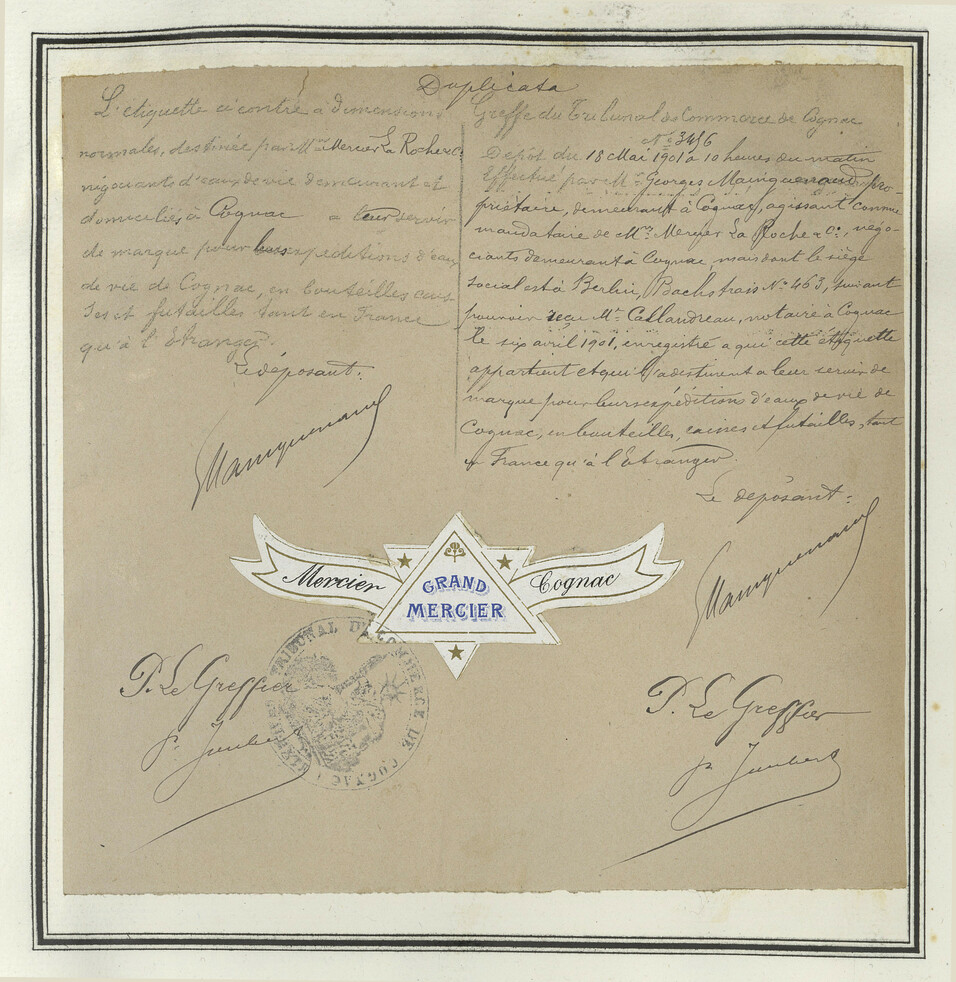 Duplicata
L'etiquette ci contre à dimensions
normales, destinée par Mrs Mercier La Roche & Co
négociants d'eaux de vie demeurant et
domiciliés à Cognac a leur servir
de marque pour leurs expeditions d'eau
de vie de Cognac, en bouteilles cais
ses et futailles tant en France
qu'à l'Etranger.
Le déposant.
Mainguenaud
Greffe du Tribunal de Commerce de Cognac
No 3456
Depôt du 18 Mai 1901 à 10 heures du matin
Effectué par Mr Georges Mainguenaud pro-
priétaire, demeurant à Cognac, agissant comme
mandataire de Mrs Mercier La Roche & Co, négo-
ciants demeurant à Cognac, mais dont le siège
social est à Berlin, No 463, suivant
pouvoir reçu Mr Callandreau, notaire à Cognac
le six avril 1901, enregistré a qui cette étiquette
appartient et qui l'a destinent a leur servir de
marque pour leurs expéditions d'eaux de vie de
Cognac, en bouteilles, caisses et futailles, tant
en France qu'à l'Etranger.
Le déposant.
Mainguenaud
Mercier
GRAND
MERCIER
Cognac
TRIBUNAL DE COMMERCE DE
COGNAC
P. Le Greffier
P. Le Greffier